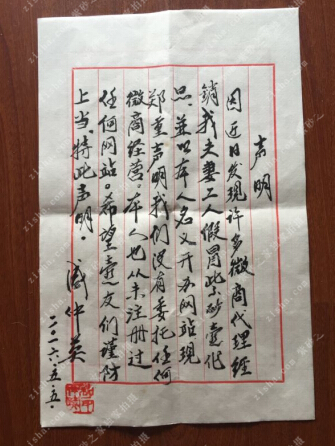 声明
因近日发现许多微商代理经
销我夫妻工人假冒此小砂壶作
品，并以本人名义开办网站现
郑重声明我们没有委托任何
微商经营。本人也从未注册过
任何网站。希望壶友们谨防
上当，特此声明。
二〇一六.五.五.